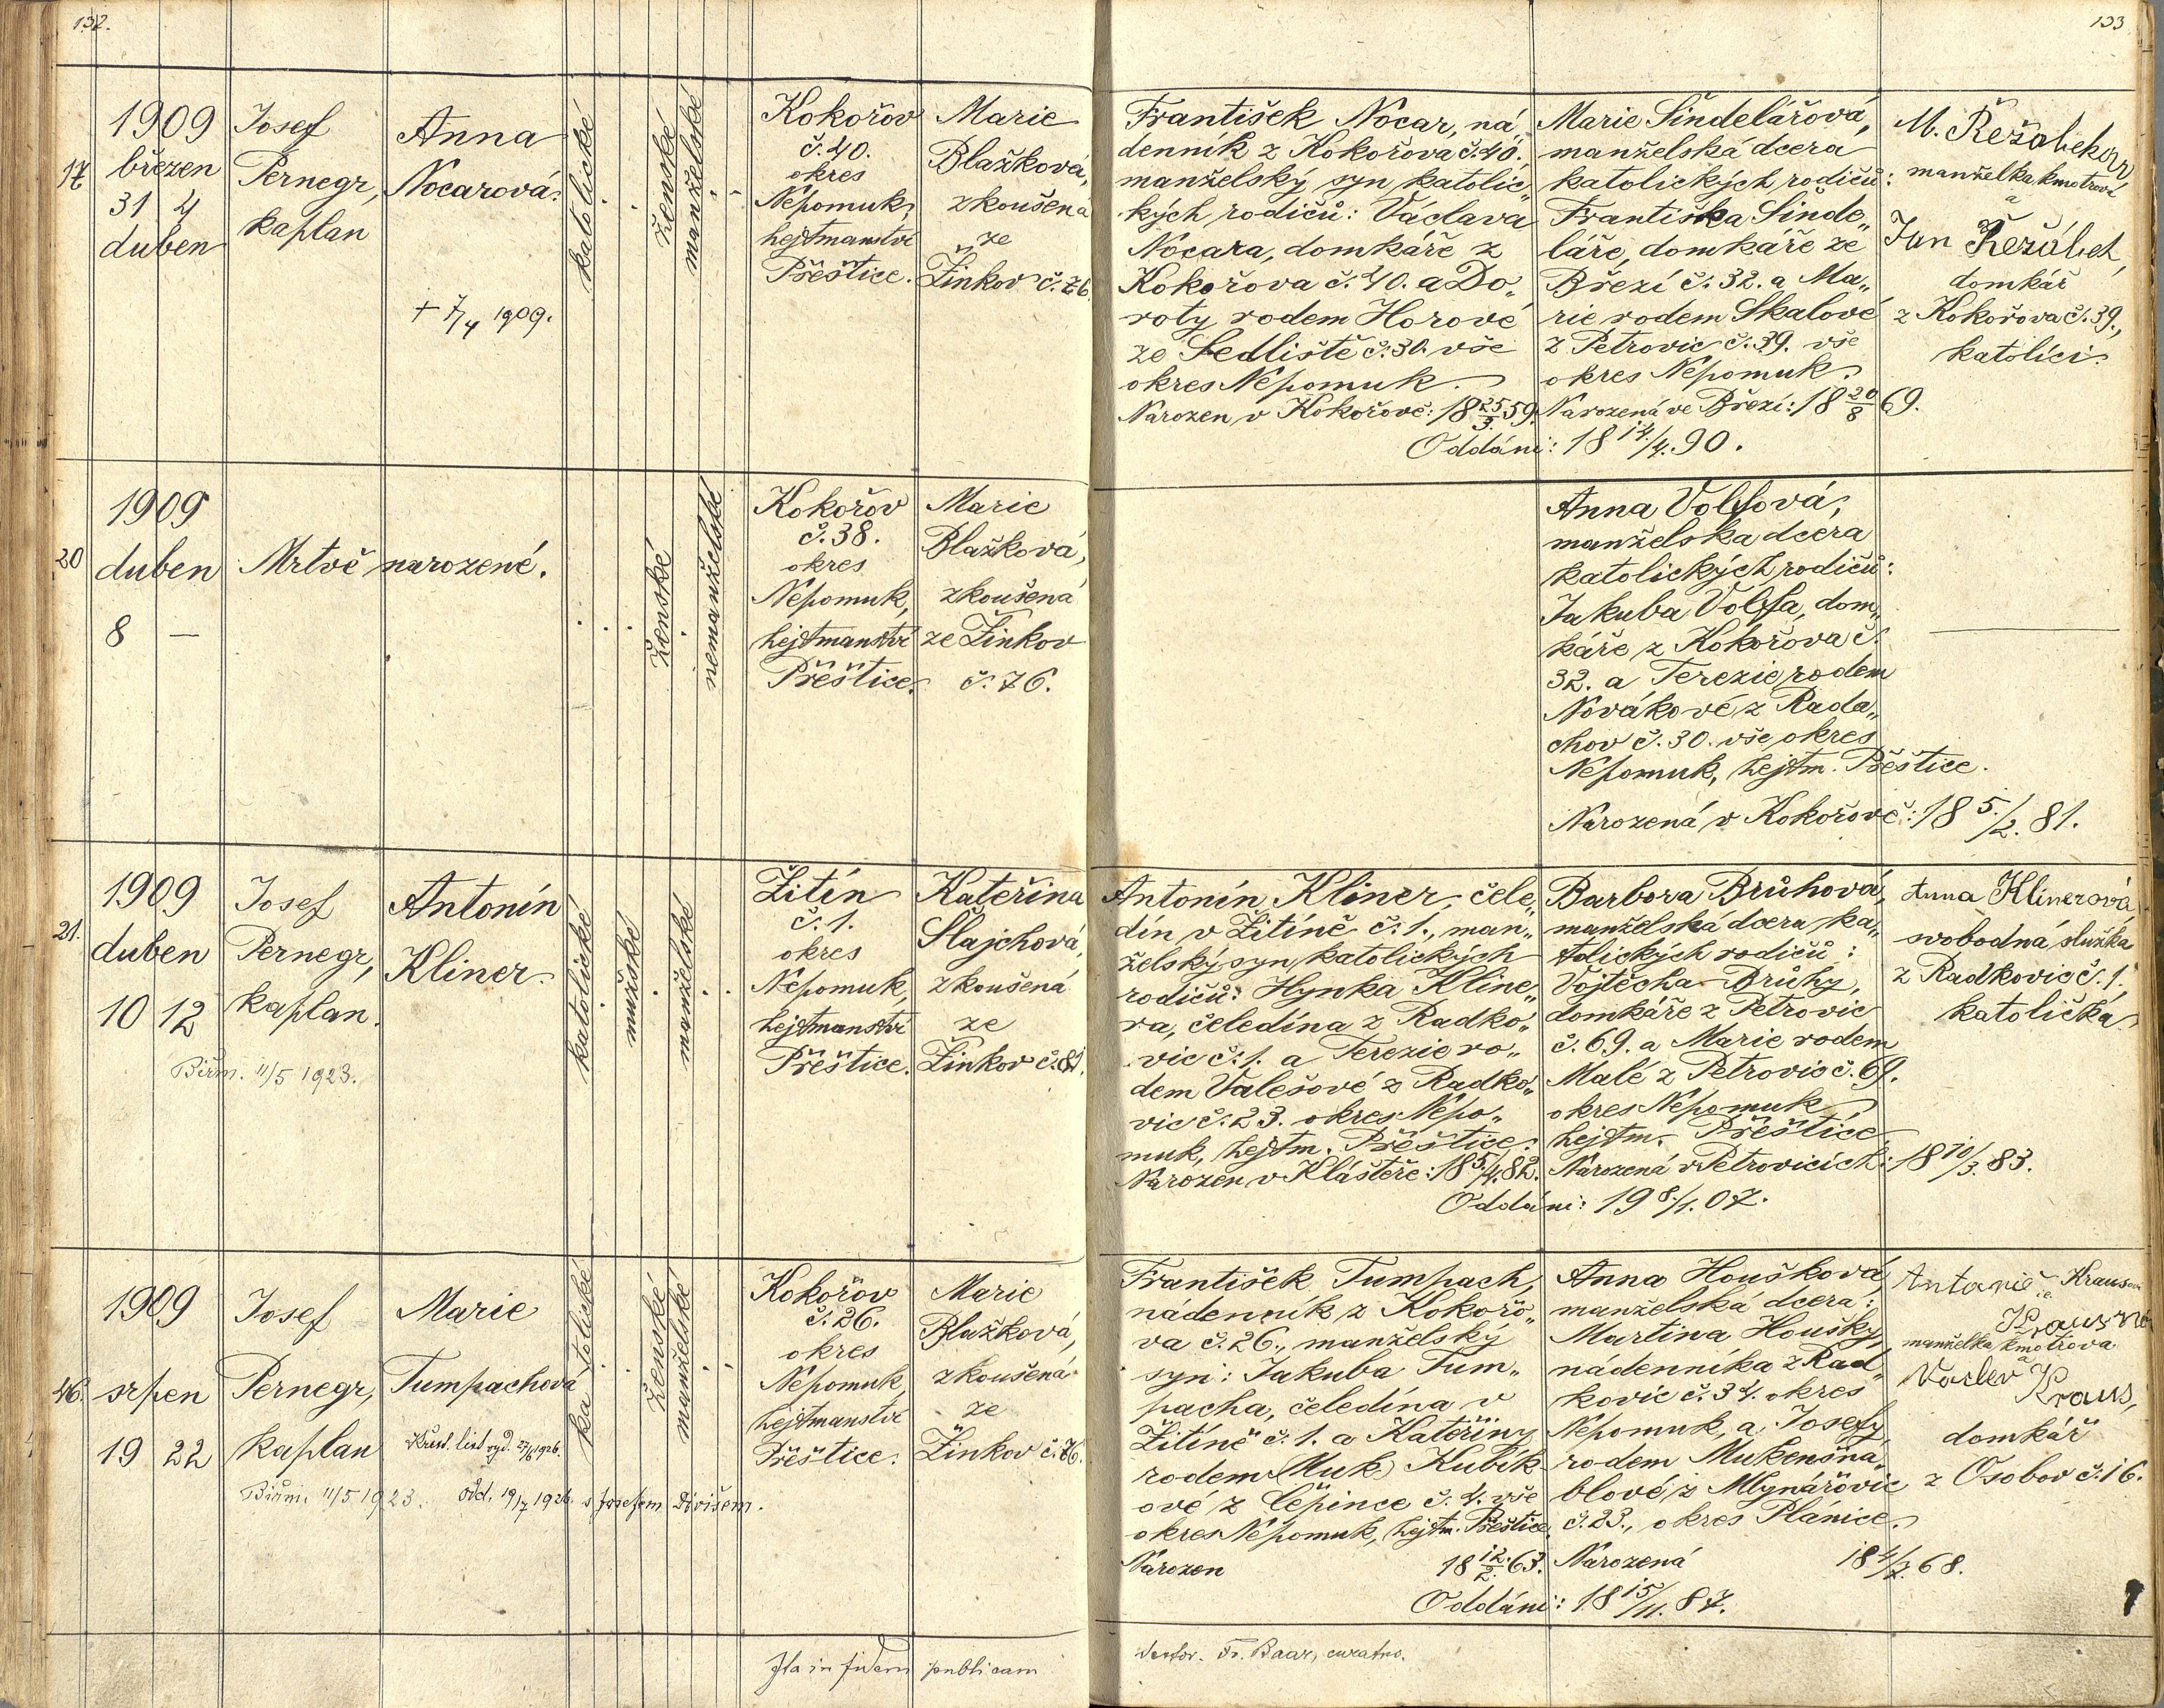 132.
133
17
1909
březen
31 4
duben
Josef
Pernegr,
kaplan
Anna
Nocarová.
+ 7/4 1909.
katolické
ženské
manželské
Kokořov
č. 40.
okres
Nepomuk,
hejtmanství
Přeštice.
Marie
Blažková,
zkoušená
ze
Žinkov č. 76.
František Nocar, ná„
denník z Kokořova č. 40.,
manželský syn katolic„
kých rodičů: Václava
Nocara, domkáře z
Kokořova č. 40. a Do„
roty rodem Horové
ze Sedliště č. 30. vše
okres Nepomuk.
Narozen v Kokořově: 18 25/3. 59.
Marie Šindelářová,
manželská dcera
katolických rodičů:
Františka Šinde„
láře, domkáře ze
Březí č. 32. a Ma„
rie rodem Skalové
z Petrovic č. 39. vše
okres Nepomuk.
Narozená ve Březí: 18 20/8 69.
Oddáni: 18 14./4. 90.
M.
manželka kmotrova
a
Jan Řežábek,
domkář
z Kokořova č. 39.,
katolíci.
20
1909
duben
8 —
Mrtvě narozené.
ženské
nemanželské
Kokořov
č. 38.
okres
Nepomuk,
hejtmanství
Přeštice.
Marie
Blažková,
zkoušená
ze Žinkov
č. 76.
Anna Volfová,
manželska dcera
katolických rodičů:
Jakuba Volfa, dom„
káře z Kokořova č.
32. a Terezie rodem
Novákové z Rada„
chov č. 30. vše okres
Nepomuk, hejtm. Přeštice.
Narozená v Kokořově: 18 5./2. 81.
21.
1909
duben
10 12
Josef
Pernegr,
kaplan.
Biřm. 11/5 1923.
Antonín
Kliner.
katolické
mužské
manželské
Žitín
č. 1.
okres
Nepomuk,
hejtmanství
Přeštice.
Kateřina
Šlajchová,
zkoušená
ze
Žinkov č. 81.
Antonín Kliner, čele„
dín v Žitíně č. 1., man„
želský syn katolických
rodičů: Hynka Kline„
ra, čeledína z Radko„
vic č. 1. a Terezie ro„
dem Valešové z Radko„
vic č. 23. okres Nepo„
muk, hejtm. Přeštice.
Narozen v Klášteře: 18 5./4. 82.
Barbora Brůhová,
manželská dcera ka„
tolických rodičů:
Vojtěcha Brůhy,
domkáře z Petrovic
č. 69. a Marie rodem
Malé z Petrovic č. 69.
okres Nepomuk
hejtm. Přeštice.
Narozená v Petrovicích: 18 10/3. 83.
Oddáni: 19 8./1. 07.
Anna Klinerová,
svobodná služka
z Radkovic č. 1.,
katolička.
46.
1909
srpen
19 22
Josef
Pernegr,
kaplan
Biřm. 11/5 1923.
Marie
Tumpachová
Křest. list vyd. 27/6 1926.
Odd. 19/7 1926. s Josefem Divišem.
katolické
ženské
manželské
Kokořov
č. 26.
okres
Nepomuk,
hejtmanství
Přeštice.
Marie
Blažková,
zkoušená
ze
Žinkov č. 76.
František Tumpach,
nádenník z Kokořo„
va č. 26., manželský
syn: Jakuba Tum„
pacha, čeledína v
Žitíně č. 1. a Kateřiny
rodem (Muk) Kubík
ové z Čepince č. 4. vše
okres Nepomuk, hejtm. Přeštice.
Narozen 18 12./2. 63.
Anna Houšková,
manželská dcera:
Martina Houšky,
nádenníka z Rad„
kovic č. 34. okres
Nepomuk, a Josefy
rodem Mukenšna„
blové z Mlynářovic
č. 23., okres Plánice.
Narozená 18 4/7. 68.
Oddáni: 18 15/11. 87.
manželka kmotrova
a
Kraus,
domkář
z Osobov č. 16.
Ita in fidem publicam
Fr. Baar,